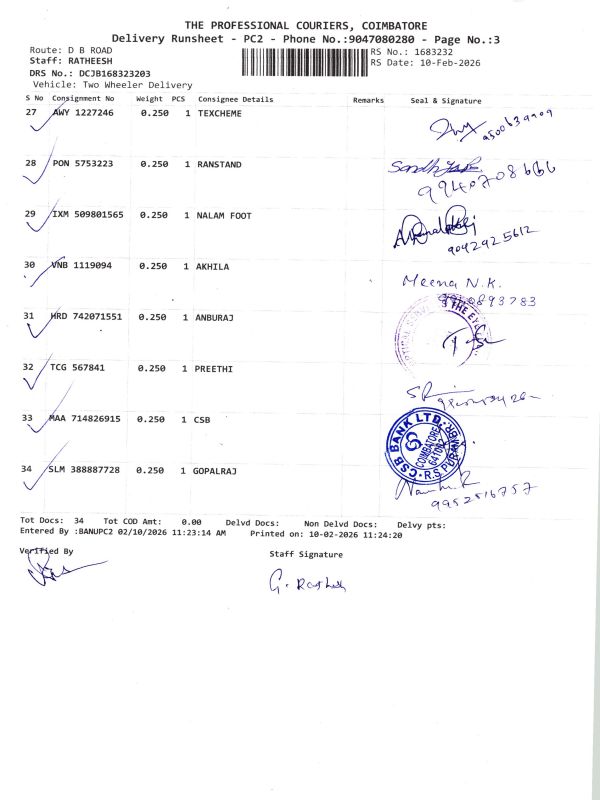 THE PROFESSIONAL COURIERS, COIMBATORE
Delivery Runsheet - PC2 - Phone No.:9047080280 - Page No.:3
Route: D B ROAD RS No.: 1683232
Staff: RATHEESH RS Date: 10-Feb-2026
DRS No.: DCJB168323203
Vehicle: Two Wheeler Delivery
S No Consignment No Weight PCS Consignee Details Remarks Seal & Signature
27 AWY 1227246 0.250 1 TEXCHEME
28 PON 5753223 0.250 1 RANSTAND
9940708666
29 IXM 509801565 0.250 1 NALAM FOOT
9042925612
30 VNB 1119094 0.250 1 AKHILA
Meena N.K.
31 HRD 742071551 0.250 1 ANBURAJ
32 TCG 567841 0.250 1 PREETHI
33 MAA 714826915 0.250 1 CSB
CSB BANK LTD. R.S. PURAM BR. COIMBATORE
34 SLM 388887728 0.250 1 GOPALRAJ
9952516757
Tot Docs: 34 Tot COD Amt: 0.00 Delvd Docs: Non Delvd Docs: Delvy pts:
Entered By :BANUPC2 02/10/2026 11:23:14 AM Printed on: 10-02-2026 11:24:20
Verified By Staff Signature